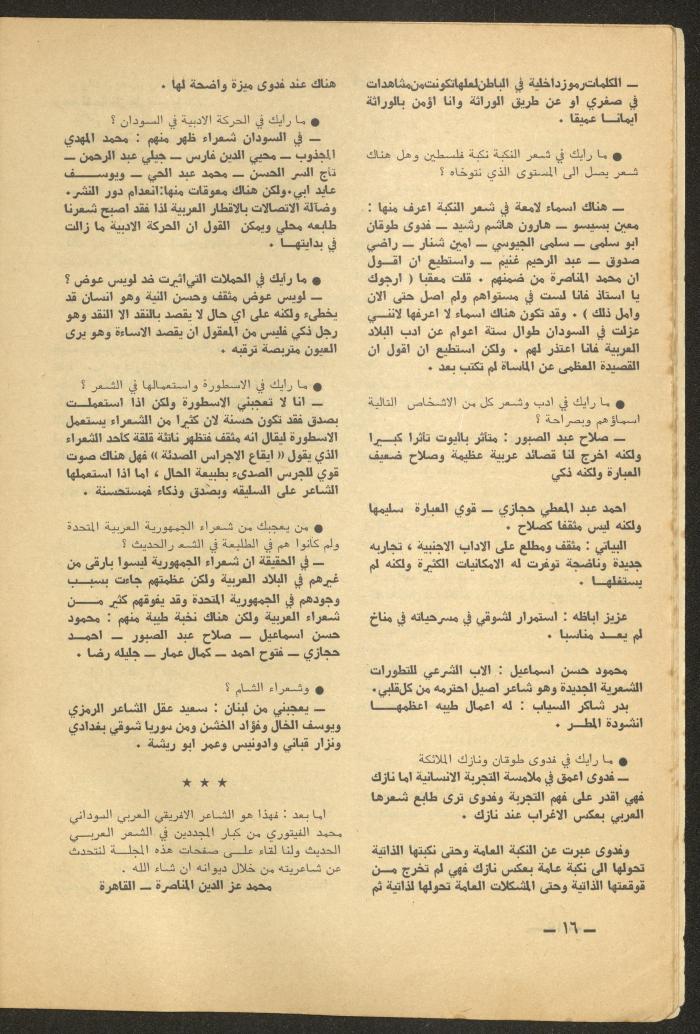 ـ الكلمات رموز داخلية في الباطن لعلها تكونت من مشاهدات
في صغري او عن طريق الوراثة وانا اؤمن بالوراثة
ايمانا عميقا ٠
● ما رايك في شعر النكبة نكبة فلسطين وهل هناك
شعر يصل الى المستوى الذي نتوخاه ؟
ـ هناك اسماء لامعة في شعر النكبة اعرف منها :
معين بسيسو ـ هارون هاشم رشيد ـ فدوى طوقان
ابو سلمى ـ سلمى الجيوسي ـ امين شنار ـ راضي
صدوق ـ عبد الرحيم غنيم ـ واستطيع ان اقول
ان محمد المناصرة من ضمنهم ٠ قلت معقبا ( ارجوك
يا استاذ فانا لست في مستواهم ولم اصل حتى الان
وامل ذلك ) ٠ وقد تكون هناك اسماء لا اعرفها لانني
عزلت في السودان طوال ستة اعوام عن ادب البلاد
العربية فانا اعتذر لهم ٠ ولكن استطيع ان اقول ان
القصيدة العظمى عن الماساة لم تكتب بعد ٠
● ما رايك في ادب وشعر كل من الاشخاص التالية
اسماؤهم وبصراحة ؟
ـ صلاح عبد الصبور : متاثر باليوت تاثرا كبيرا
ولكنه اخرج لنا قصائد عربية عظيمة وصلاح ضعيف
العبارة ولكنه ذكي
احمد عبد المعطي حجازي ـ قوي العبارة سليمها
ولكنه ليس مثقفا كصلاح ٠
البياتي : مثقف ومطلع على الاداب الاجنبية ، تجاربه
جديدة وناضجة توفرت له الامكانيات الكثيرة ولكنه لم
يستغلها ٠
عزيز اباظه : استمرار لشوقي في مسرحياته في مناخ
لم يعد مناسبا ٠
محمود حسن اسماعيل : الاب الشرعي للتطورات
الشعرية الجديدة وهو شاعر اصيل احترمه من كل قلبي٠
بدر شاكر السياب : له اعمال طيبه اعظمها
انشودة المطر ٠
● ما رايك في فدوى طوقان ونازك الملائكة
ـ فدوى اعمق في ملامسة التجربة الانسانية اما نازك
فهي اقدر على فهم التجربة وفدوى ترى طابع شعرها
العربي بعكس الاغراب عند نازك ٠
وفدوى عبرت عن النكبة العامة وحتى نكبتها الذاتية
تحولها الى نكبة عامة بعكس نازك فهي لم تخرج من
قوقعتها الذاتية وحتى المشكلات العامة تحولها لذاتية ثم
هناك عند فدوى ميزة واضحة لها ٠
● ما رايك في الحركة الادبية في السودان ؟
ـ في السودان شعراء ظهر منهم : محمد المهدي
المجذوب ـ محيي الدين فارس ـ جيلي عبد الرحمن ـ
تاج السر الحسن ـ محمد عبد الحي ـ ويوسف
عايد ابي٠ولكن هناك معوقات منها:انعدام دور النشر٠
وضآلة الاتصالات بالاقطار العربية لذا فقد اصبح شعرنا
طابعه محلي ويمكن القول ان الحركة الادبية ما زالت
في بدايتها ٠
● ما رايك في الحملات التي اثيرت ضد لويس عوض ؟
ـ لويس عوض مثقف وحسن النية وهو انسان قد
يخطىء ولكنه على اي حال لا يقصد بالنقد الا النقد وهو
رجل ذكي فليس من المعقول ان يقصد الاساءة وهو يرى
العيون متربصة ترقبه ٠
● ما رايك في الاسطورة واستعمالها في الشعر ؟
ـ انا لا تعجبني الاسطورة ولكن اذا استعملت
بصدق فقد تكون حسنة لان كثيرا من الشعراء يستعمل
الاسطورة ليقال انه مثقف فتظهر ناتئة قلقة كاحد الشعراء
الذي يقول (( ايقاع الاجراس الصدئة )) فهل هناك صوت
قوي للجرس الصدىء بطبيعة الحال ، اما اذا استعملها
الشاعر على السليقه وبصدق وذكاء فمستحسنة ٠
● من يعجبك من شعراء الجمهورية العربية المتحدة
ولم كانوا هم في الطليعة في الشعر الحديث ؟
ـ في الحقيقة ان شعراء الجمهورية ليسوا بارقى من
غيرهم في البلاد العربية ولكن عظمتهم جاءت بسبب
وجودهم في الجمهورية المتحدة وقد يفوقهم كثير من
شعراء العربية ولكن هناك نخبة طيبة منهم : محمود
حسن اسماعيل ـ صلاح عبد الصبور ـ احمد
حجازي ـ فتوح احمد ـ كمال عمار ـ جليله رضا ٠
● وشعراء الشام ؟
ـ يعجبني من لبنان : سعيد عقل الشاعر الرمزي
ويوسف الخال وفؤاد الخشن ومن سوريا شوقي بغدادي
ونزار قباني وادونيس وعمر ابو ريشة ٠
★ ★ ★
اما بعد : فهذا هو الشاعر الافريقي العربي السوداني
محمد الفيتوري من كبار المجددين في الشعر العربي
الحديث ولنا لقاء على صفحات هذه المجلة لنتحدث
عن شاعريته من خلال ديوانه ان شاء الله ٠
محمد عز الدين المناصرة ـ القاهرة
ـ ١٦ ـ